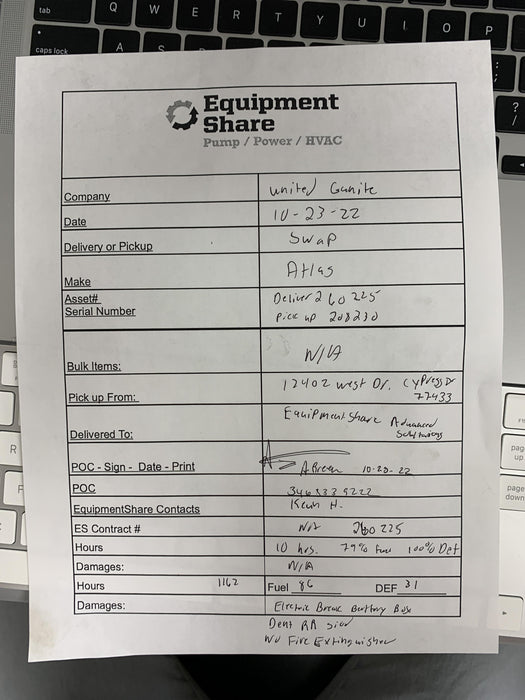 tab Q W E R T Y U I O P
caps lock A S
? /
Equipment
Share
Pump / Power / HVAC
Company United Gunite
Date 10-23-22
Delivery or Pickup Swap
Make Atlas
Asset# Deliver 260225
Serial Number Pick up 208230
Bulk Items: N/A
Pick up From: 12402 West Dr. Cypress Dr
77433
Delivered To: Equipment Share Advanced
Solutions
POC - Sign - Date - Print A Breen 10-23-22
POC 346 533 9222
EquipmentShare Contacts Kevin H.
ES Contract # N/A 260 225
Hours 10 hrs. 79% Fuel 100% Def
Damages: N/A
Hours 1162 Fuel 86 DEF 31
Damages: Electric Break Battery Box
Dent RR Side
No Fire Extinguisher
R
F
page up
page down